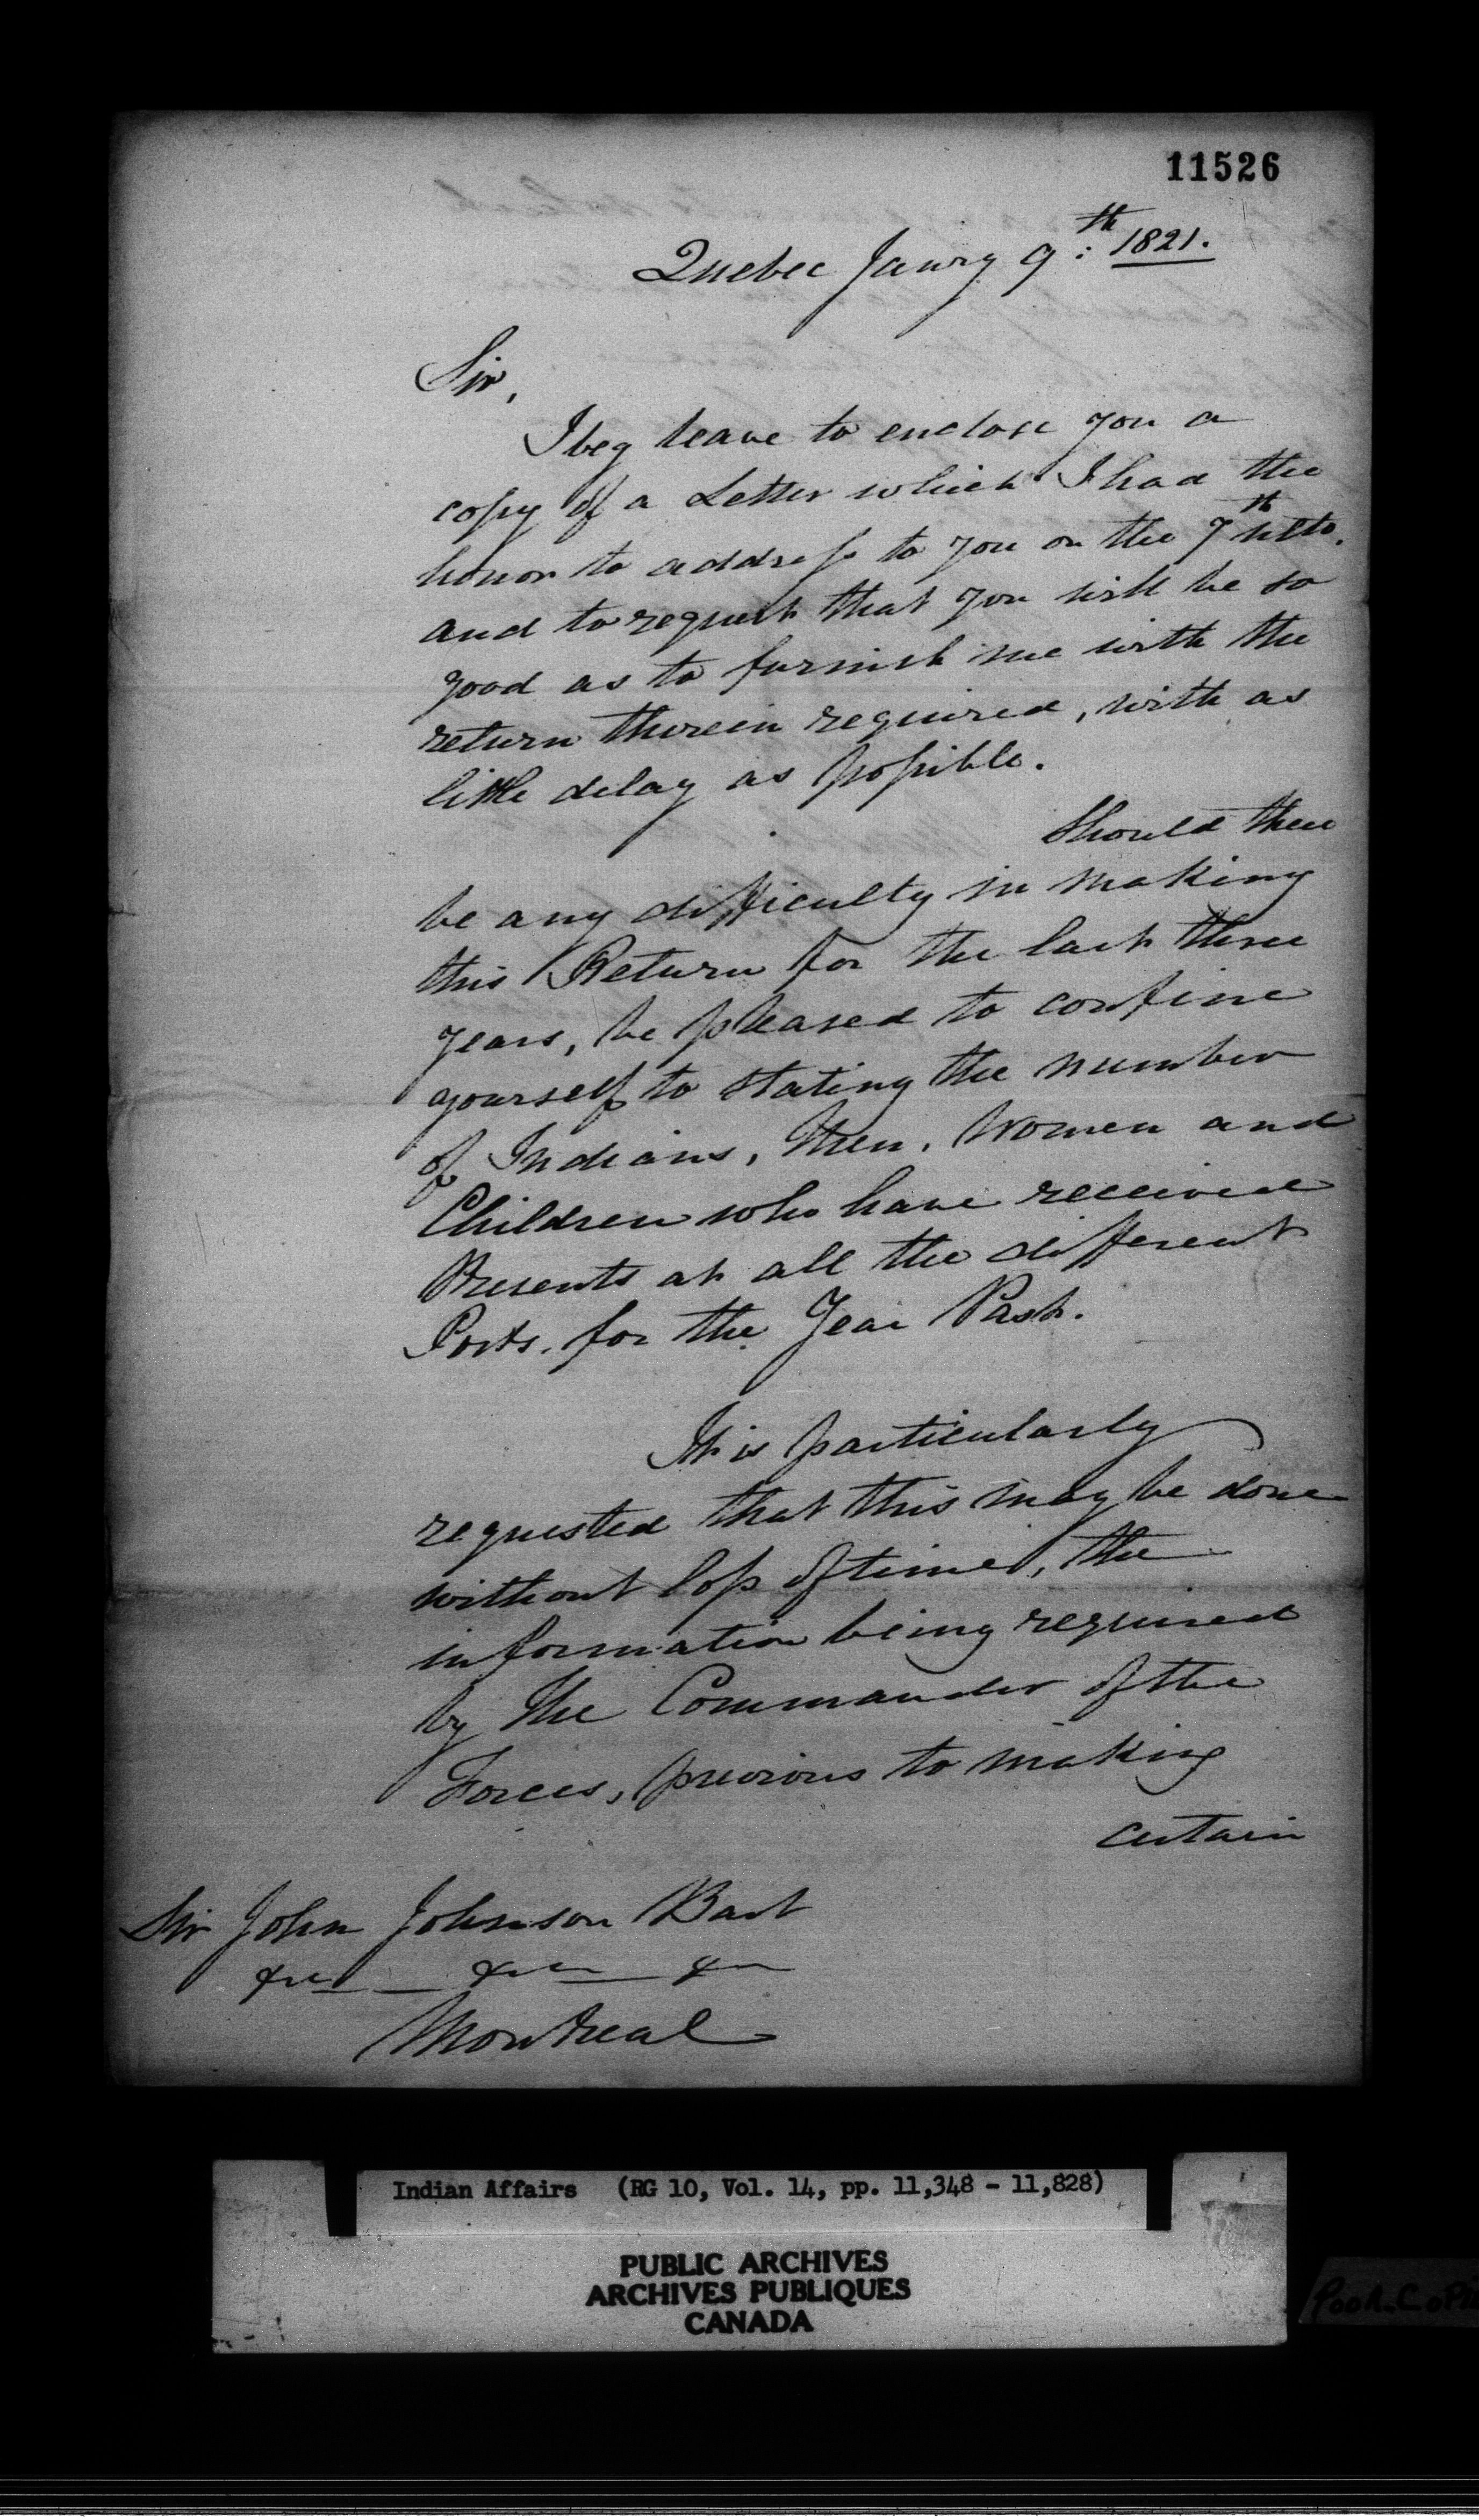 11526
Quebec Janry 9th: 1821.
Sir,
I beg leave to enclose you a
copy of a Letter which I had the
honor to address to you on the 7th ulto.
and to request that you will be so
good as to furnish me with the
return therein required, with as
little delay as possible.
Should there
be any difficulty in making
this Return for the last three
years, be pleased to confine
yourself to stating the number
of Indians, Men, Women and
Children who have received
Presents at all the different
Posts, for the Year Past.
It is particularly
requested that this may be done
without loss of time, the
information being required
by the Commander of the
Forces, previous to making
certain
Sir John Johnson Bart
&c &c &c
Montreal
Indian Affairs (RG 10, Vol. 14, pp. 11,348 - 11,828)
PUBLIC ARCHIVES
ARCHIVES PUBLIQUES
CANADA